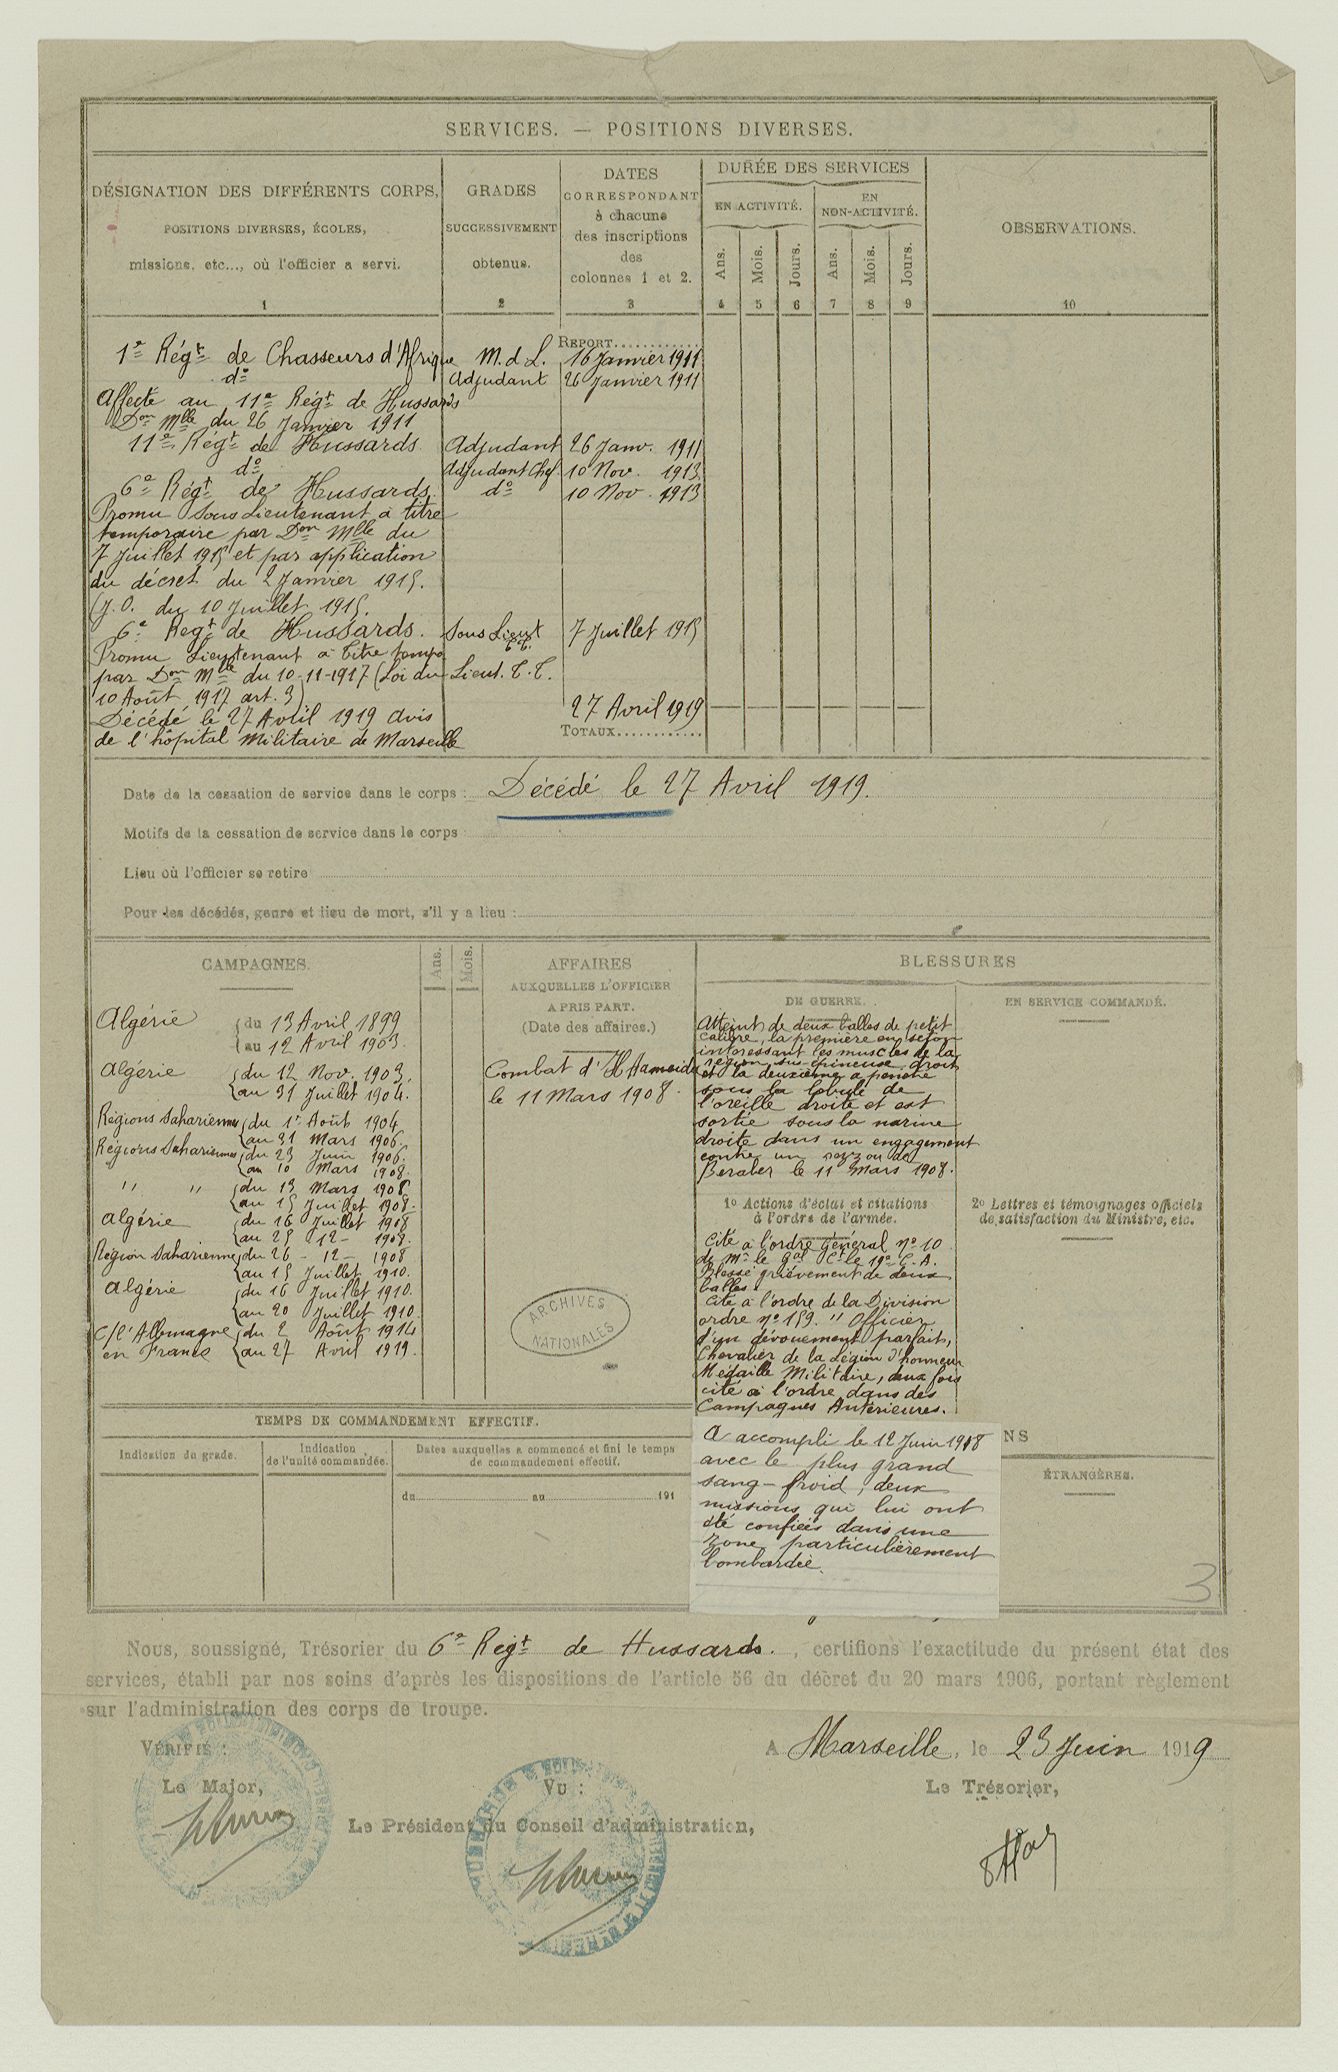 SERVICES. — POSITIONS DIVERSES.
DÉSIGNATION DES DIFFÉRENTS CORPS,
POSITIONS DIVERSES, ÉCOLES,
missions, etc..., où l'officier a servi.
1
GRADES
SUCCESSIVEMENT
obtenus.
2
DATES
CORRESPONDANT
à chacune
des inscriptions
des
colonnes 1 et 2.
3
DURÉE DES SERVICES
EN ACTIVITÉ.
EN
NON-ACTIVITÉ.
Ans. Mois. Jours. Ans. Mois. Jours.
4 5 6 7 8 9
OBSERVATIONS.
10
REPORT............
1er Régt de Chasseurs d'Afrique M. d L. 16 Janvier 1911
do Adjudant 26 Janvier 1911
Affecté au 11e Régt de Hussards
Don Mlle du 26 Janvier 1911
11e Régt de Hussards Adjudant 26 Janv. 1911
do Adjudant Chef 10 Nov. 1913
6e Régt de Hussards. do 10 Nov. 1913
Promu Sous Lieutenant à titre
temporaire par Don Mlle du
7 Juillet 1915 et par application
du décret du 2 Janvier 1915.
(J.O. du 10 Juillet 1915.
6e Regt de Hussards. Sous Lieut 7 Juillet 1915
T.T.
Promu Lieutenant à titre tempo
par Don Mlle du 10-11-1917 (Loi du Lieut. T.T.
10 Août 1917 art. 3)
Décédé le 27 Avril 1919 avis 27 Avril 1919
de l'hôpital Militaire de Marseille TOTAUX............
Date de la cessation de service dans le corps : Décédé le 27 Avril 1919.
Motifs de la cessation de service dans le corps
Lieu où l'officier se retire
Pour les décédés, genre et lieu de mort, s'il y a lieu :
CAMPAGNES.
Ans.
Mois.
Algérie du 13 Avril 1899
au 12 Avril 1903.
Algérie du 12 Nov. 1903.
au 31 Juillet 1904.
Régions Sahariennes du 1er Août 1904
au 31 Mars 1906.
Régions Sahariennes du 23 Juin 1906.
au 10 Mars 1908.
" " du 13 Mars 1908
au 15 Juillet 1908.
Algérie du 16 Juillet 1908
au 25 - 12 - 1908.
Région Saharienne du 26 - 12 - 1908
au 15 Juillet 1910.
Algérie du 16 Juillet 1910.
au 20 Juillet 1910.
C/l'Allemagne du 2 Août 1914
en France au 27 Avril 1919.
AFFAIRES
AUXQUELLES L'OFFICIER
A PRIS PART.
(Date des affaires.)
Combat d'
le 11 Mars 1908.
ARCHIVES
NATIONALES
BLESSURES
DE GUERRE.
Atteint de deux balles de petit
calibre, la première en seton
intéressant les muscles de la
région sus-épineuse droite
et la deuxième a pénétré
sous la lobule de
l'oreille droite et est
sortie sous la narine
droite dans un engagement
contre un rezzou de
Beraber le 11 Mars 1908.
EN SERVICE COMMANDÉ.
1o Actions d'éclat et citations
à l'ordre de l'armée.
Cité à l'ordre général No 10
de Mr le Gal Ct le 19e C.A.
Blessé grièvement de deux
balles.
Cité à l'ordre de la Division
ordre No 159. " Officier
d'un dévouement parfait,
Chevalier de la Légion d'honneur
Médaille Militaire, deux fois
cité à l'ordre dans des
Campagnes Antérieures.
A accompli le 12 Juin 1918
avec le plus grand
sang-froid, deux
missions qui lui ont
été confiées dans une
zone particulièrement
bombardée.
2o Lettres et témoignages officiels
de satisfaction du Ministre, etc.
NS
ÉTRANGÈRES.
TEMPS DE COMMANDEMENT EFFECTIF.
Indication du grade.
Indication
de l'unité commandée.
Dates auxquelles a commencé et fini le temps
de commandement effectif.
du au 191
3
Nous, soussigné, Trésorier du 6e Régt de Hussards. , certifions l'exactitude du présent état des
services, établi par nos soins d'après les dispositions de l'article 56 du décret du 20 mars 1906, portant règlement
sur l'administration des corps de troupe.
A Marseille, le 23 Juin 1919
VÉRIFIÉ :
Le Major,
Vu :
Le Président du Conseil d'administration,
Le Trésorier,